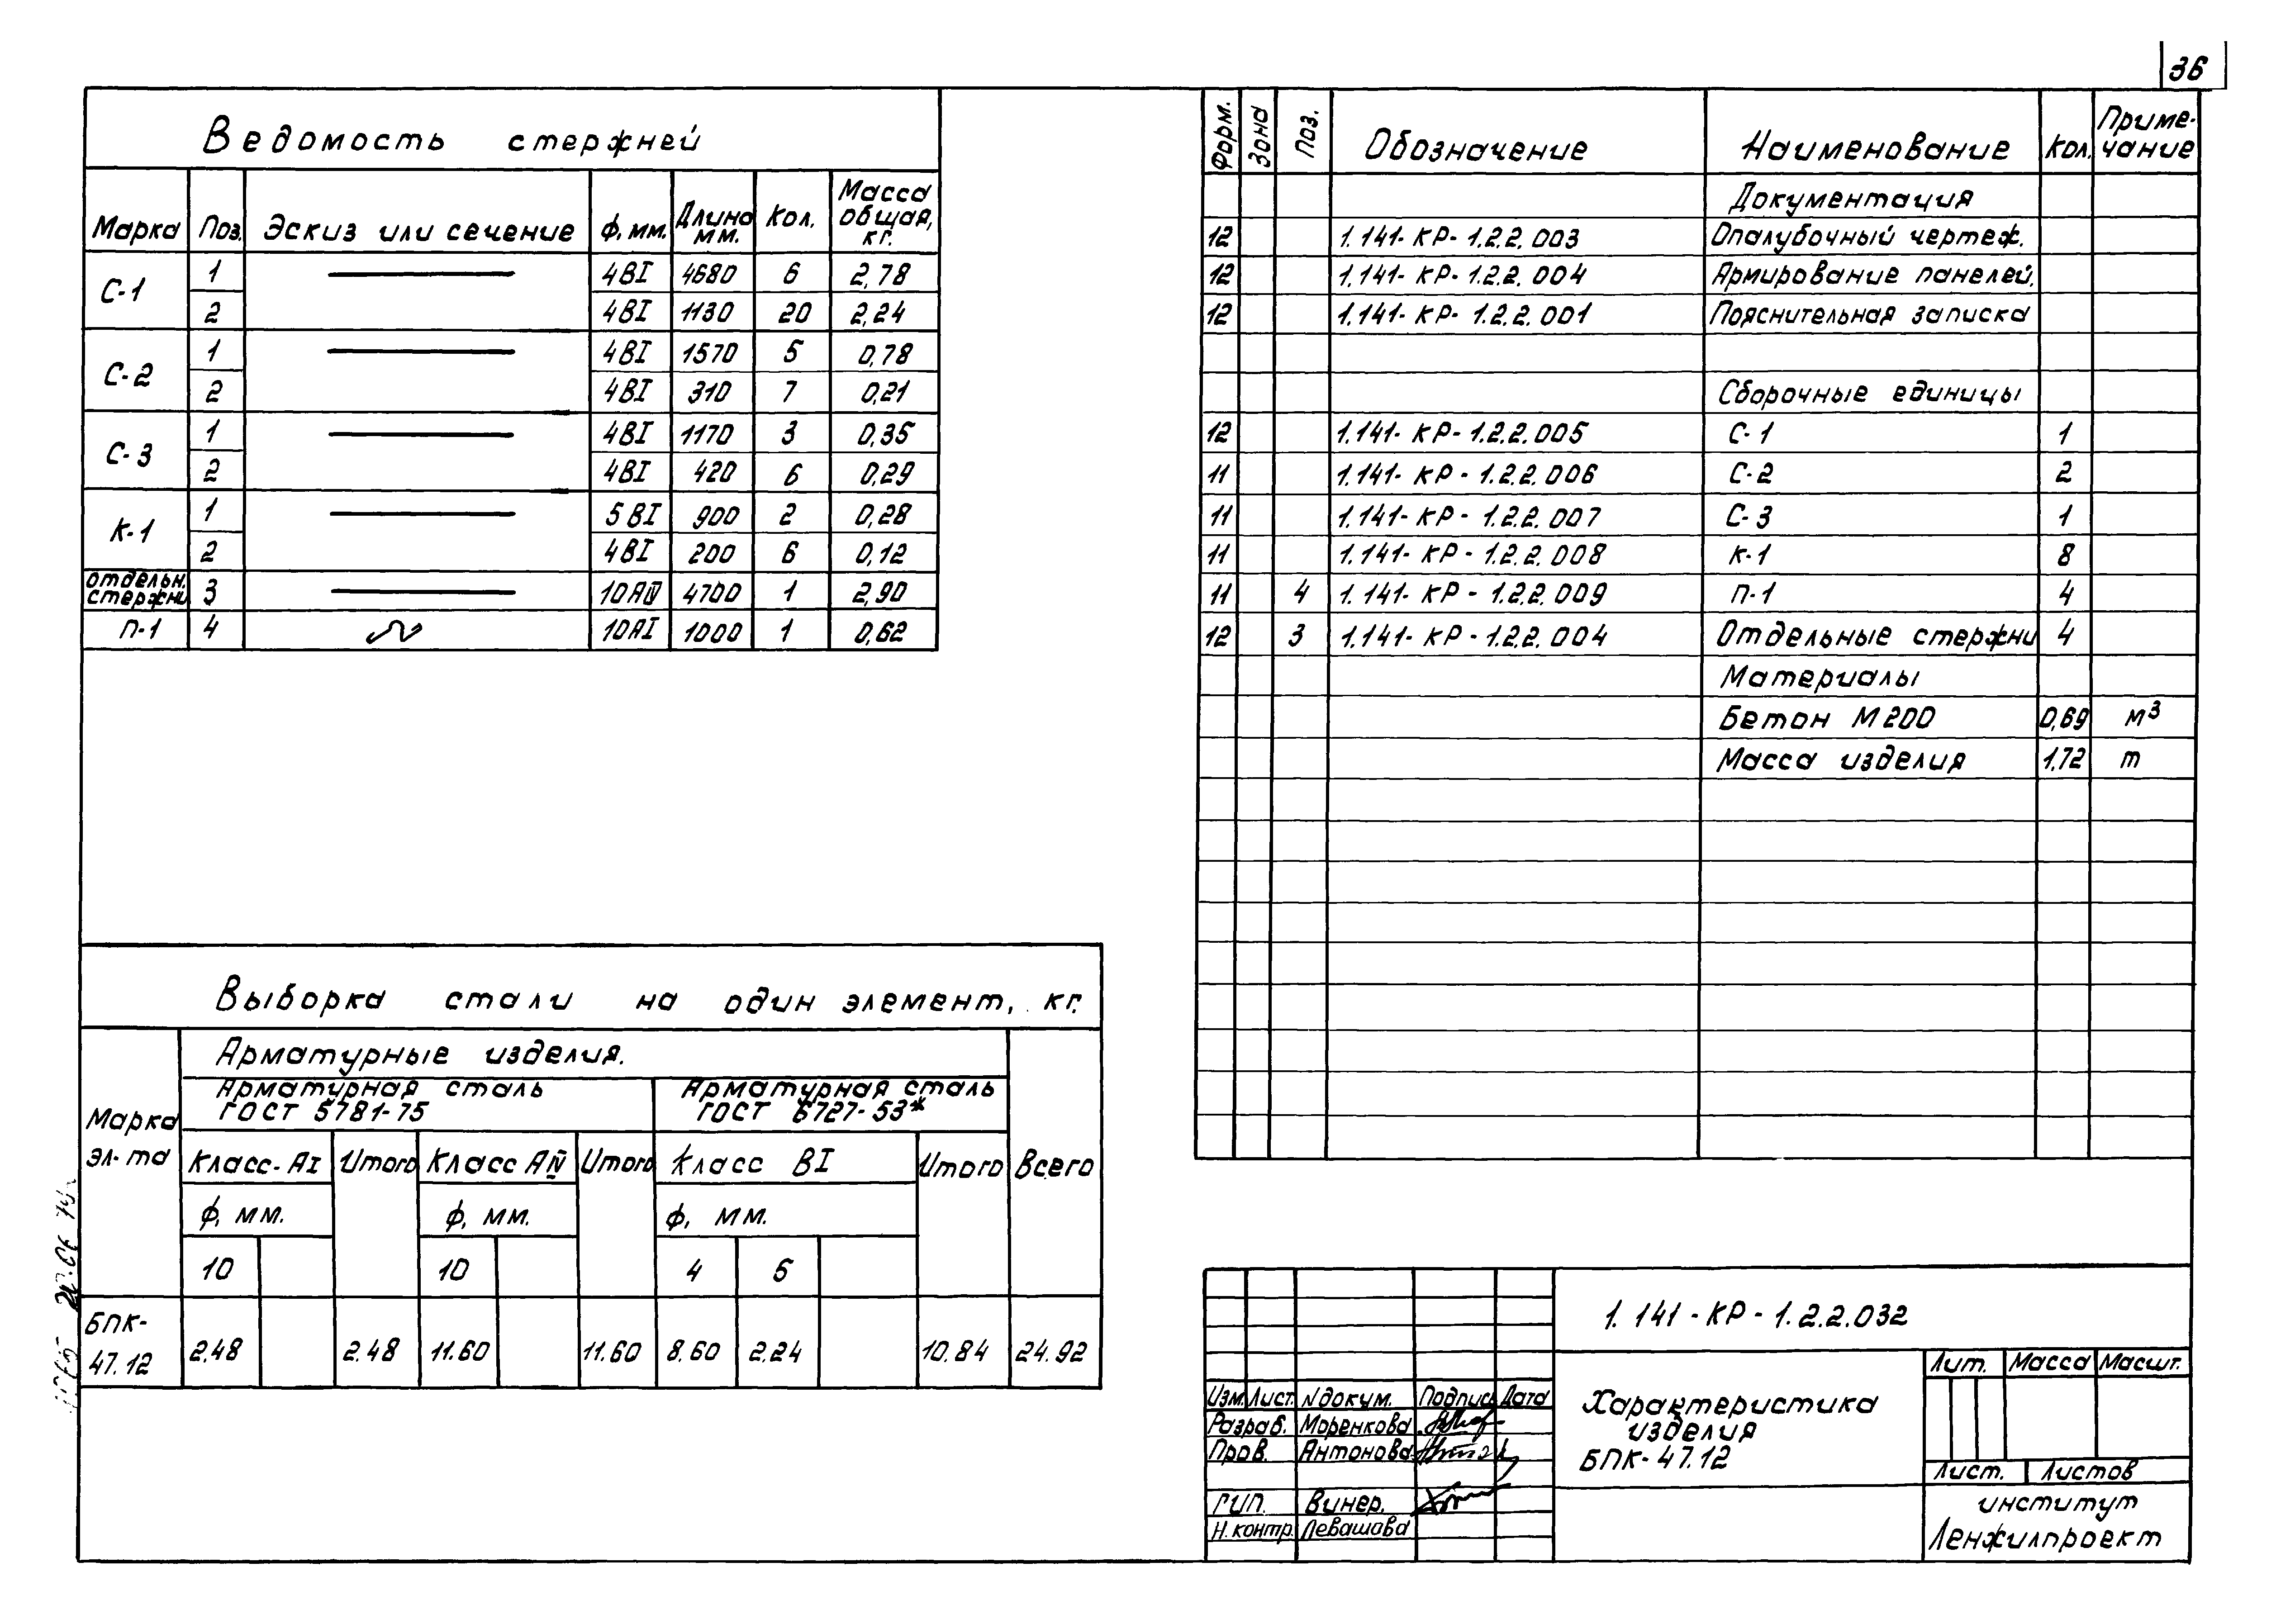 36
Ведомость стержней
Марка Поз. Эскиз или сечение ф, мм. Длина мм. Кол. Масса общая, кг.
С-1 1 4ВI 4680 6 2,78
2 4ВI 1130 20 2,24
С-2 1 4ВI 1570 5 0,78
2 4ВI 310 7 0,21
С-3 1 4ВI 1170 3 0,35
2 4ВI 420 6 0,29
К-1 1 5ВI 900 2 0,28
2 4ВI 200 6 0,12
отдельн. стержни 3 10АIV 4700 1 2,90
П-1 4 10АI 1000 1 0,62
Выборка стали на один элемент, кг.
Марка эл-та
Арматурные изделия.
Арматурная сталь ГОСТ 5781-75
Арматурная сталь ГОСТ 6727-53*
Класс-АI Итого Класс АIV Итого Класс ВI Итого Всего
ф, мм. ф, мм. ф, мм.
10 10 4 5
БПК-47.12 2.48 2.48 11.60 11.60 8.60 2.24 10.84 24.92
Форм. Зона Поз. Обозначение Наименование Кол. Приме-чание
Документация
12 1.141-КР-1.2.2.003 Опалубочный чертеж.
12 1.141-КР-1.2.2.004 Армирование панелей.
12 1.141-КР-1.2.2.001 Пояснительная записка
Сборочные единицы
12 1.141-КР-1.2.2.005 С-1 1
11 1.141-КР-1.2.2.006 С-2 2
11 1.141-КР-1.2.2.007 С-3 1
11 1.141-КР-1.2.2.008 К-1 8
11 4 1.141-КР-1.2.2.009 П-1 4
12 3 1.141-КР-1.2.2.004 Отдельные стержни 4
Материалы
Бетон М200 0,69 м³
Масса изделия 1,72 т
1.141-КР-1.2.2.032
Изм. Лист. N докум. Подпись Дата
Разраб. Моренкова
Пров. Антонова
ГИП. Винер.
Н.контр. Левашова
Характеристика
изделия
БПК-47.12
Лит. Масса Масшт.
Лист. Листов
институт
Ленжилпроект